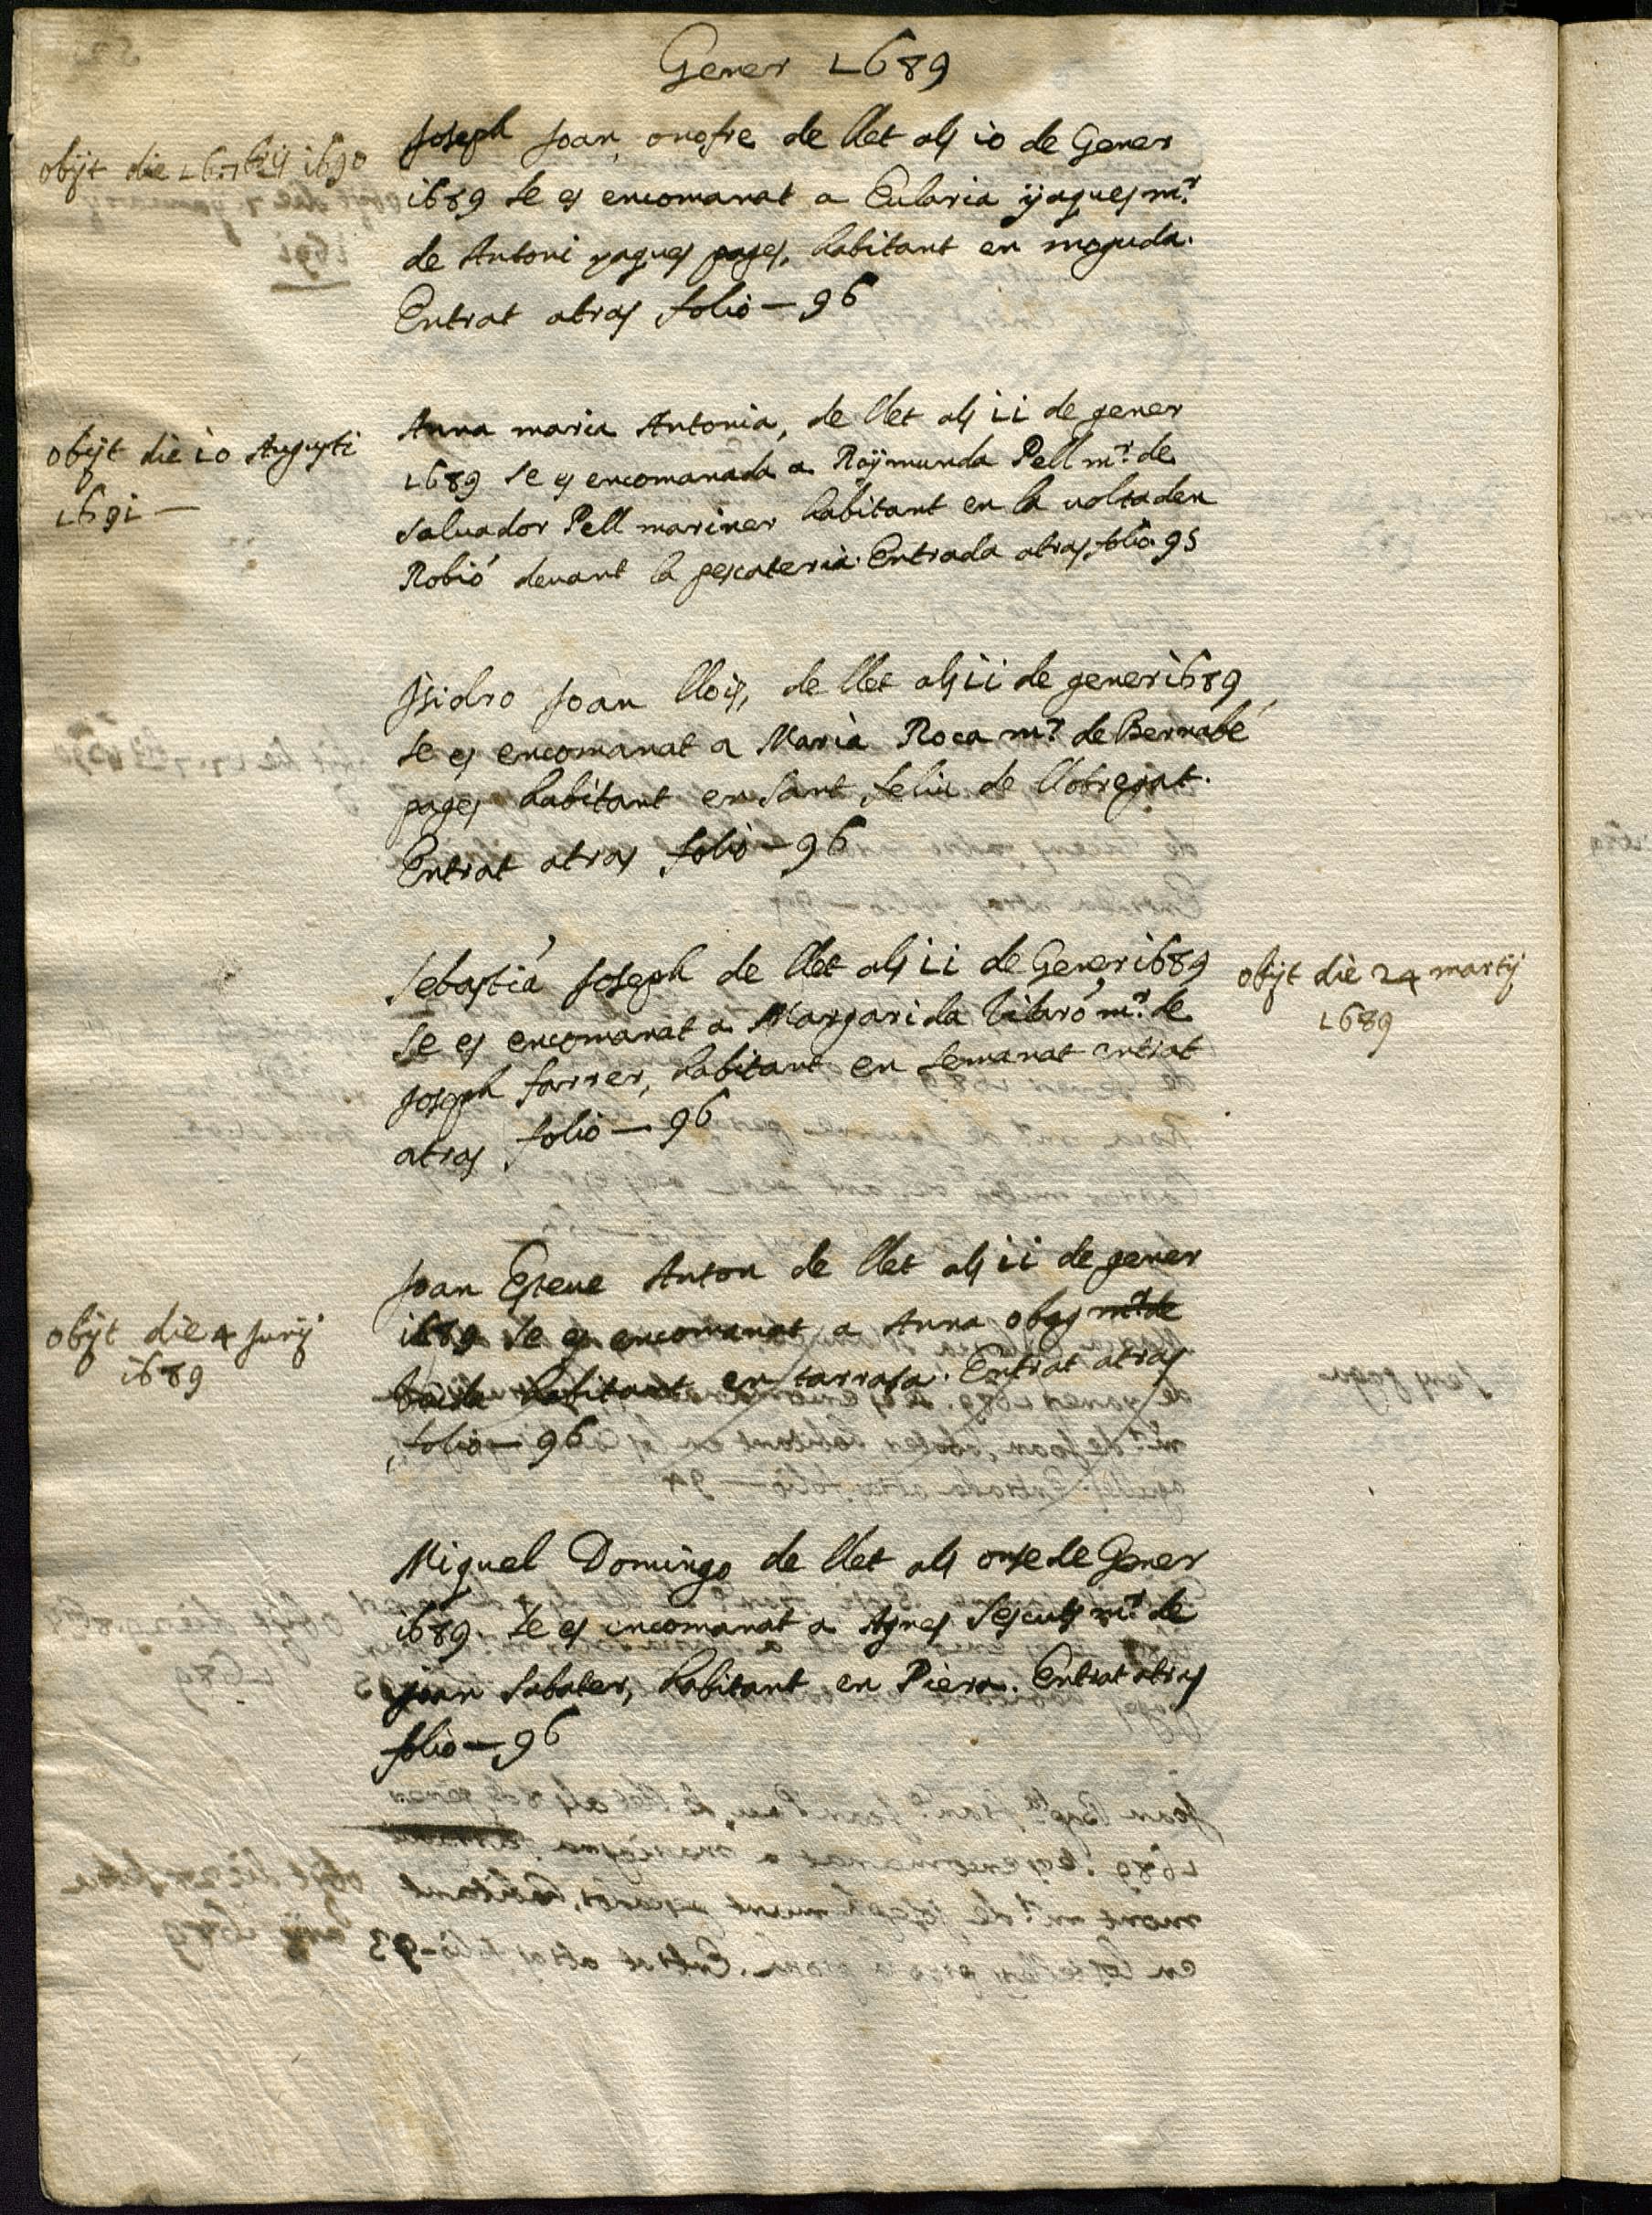 Gener 1689
obijt die 16 7bris 1690
Joseph Joan, onofre de llet als 10 de Gener
1689 se es encomanat a Eularia yaques mr
de Antoni yaques pages, habitant en moguda.
Entrat atras folio - 96
obijt die 10 Augusti
1691 -
Anna maria Antonia, de llet als 11 de gener
1689 se es encomanada a Raÿmunda Pell mr de
saluador Pell mariner habitant en la volta den
Robió deuant la pescateria. Entrada atras folio 95
Isidro Joan llois, de llet als 11 de gener 1689
se es encomanat a Maria Roca mr de Bernabé
pages habitant en Sant feliu de llobregat.
Entrat atras folio - 96
Sebastiá Joseph de llet als 11 de Gener 1689
se es encomanat a Margarida Vilaró mr de
Joseph farrer, habitant en semanat entrat
atras folio - 96
obijt die 24 martij
1689
obijt die 4 Junij
1689
Joan Esteue Anton de llet als 11 de gener
1689 se es encomanat a Anna obas mr de
habitant en tarrasa. Entrat atras
folio - 96
Miquel Domingo de llet als onse de Gener
1689. se es encomanat a Agnes Sescuts mr de
joan sabater, habitant en Piera. Entrat atras
folio - 96